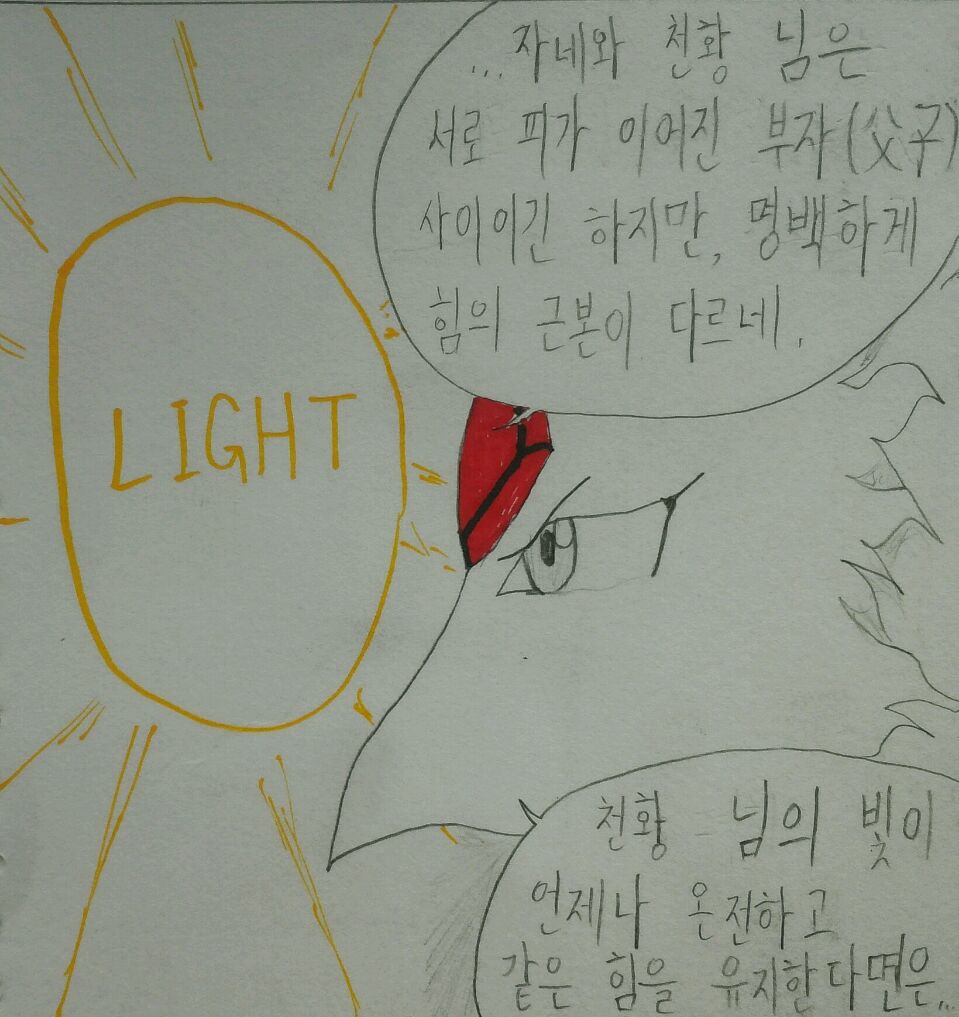 ...자네와 천황 님은
서로 피가 이어진 부자(父子)
사이이긴 하지만, 명백하게
힘의 근본이 다르네.
LIGHT
천황 님의 빛이
언제나 온전하고
같은 힘을 유지한다면은...